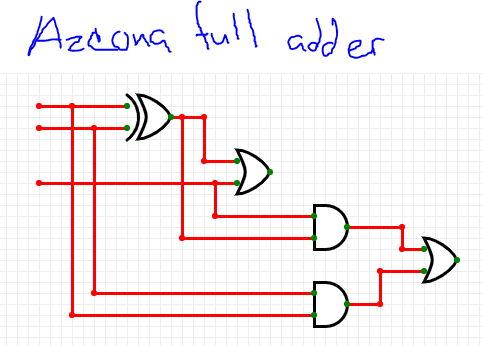 Azcona full adder